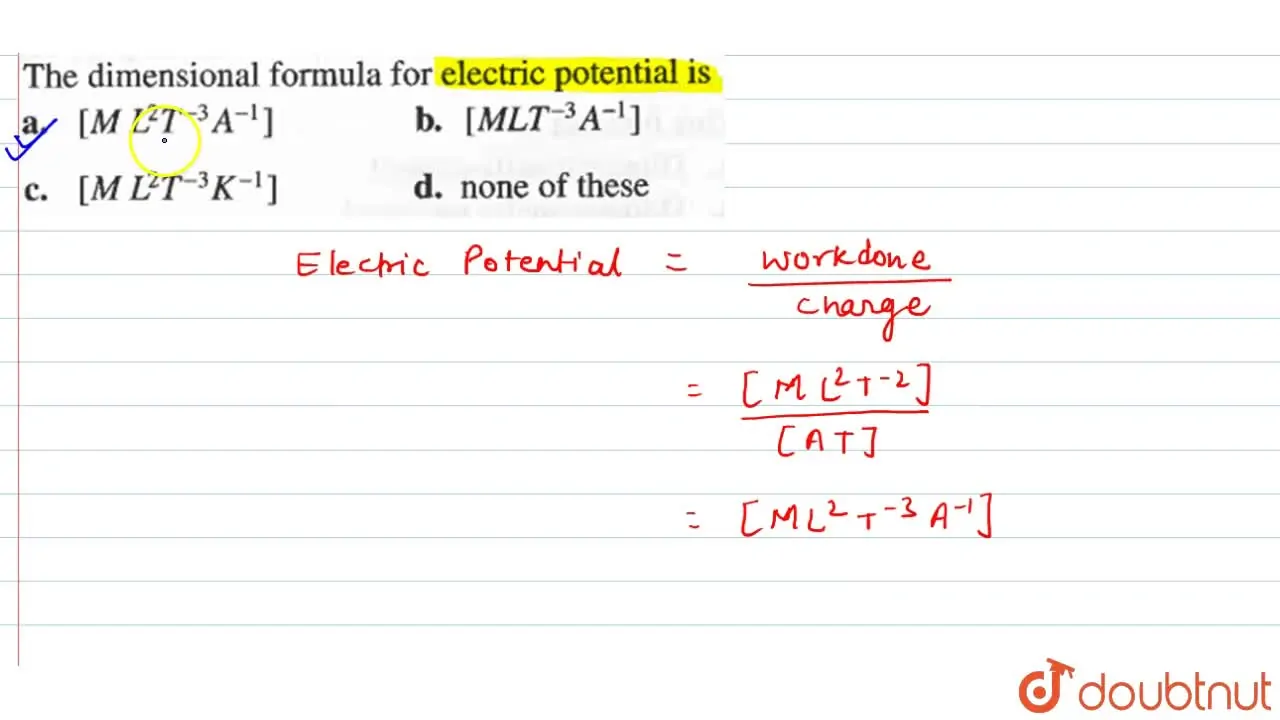 The dimensional formula for electric potential is
a. [M L²T⁻³A⁻¹] b. [MLT⁻³A⁻¹]
c. [M L²T⁻³K⁻¹] d. none of these
Electric Potential = workdone / charge
= [M L² T⁻²] / [A T]
= [M L² T⁻³ A⁻¹]
doubtnut